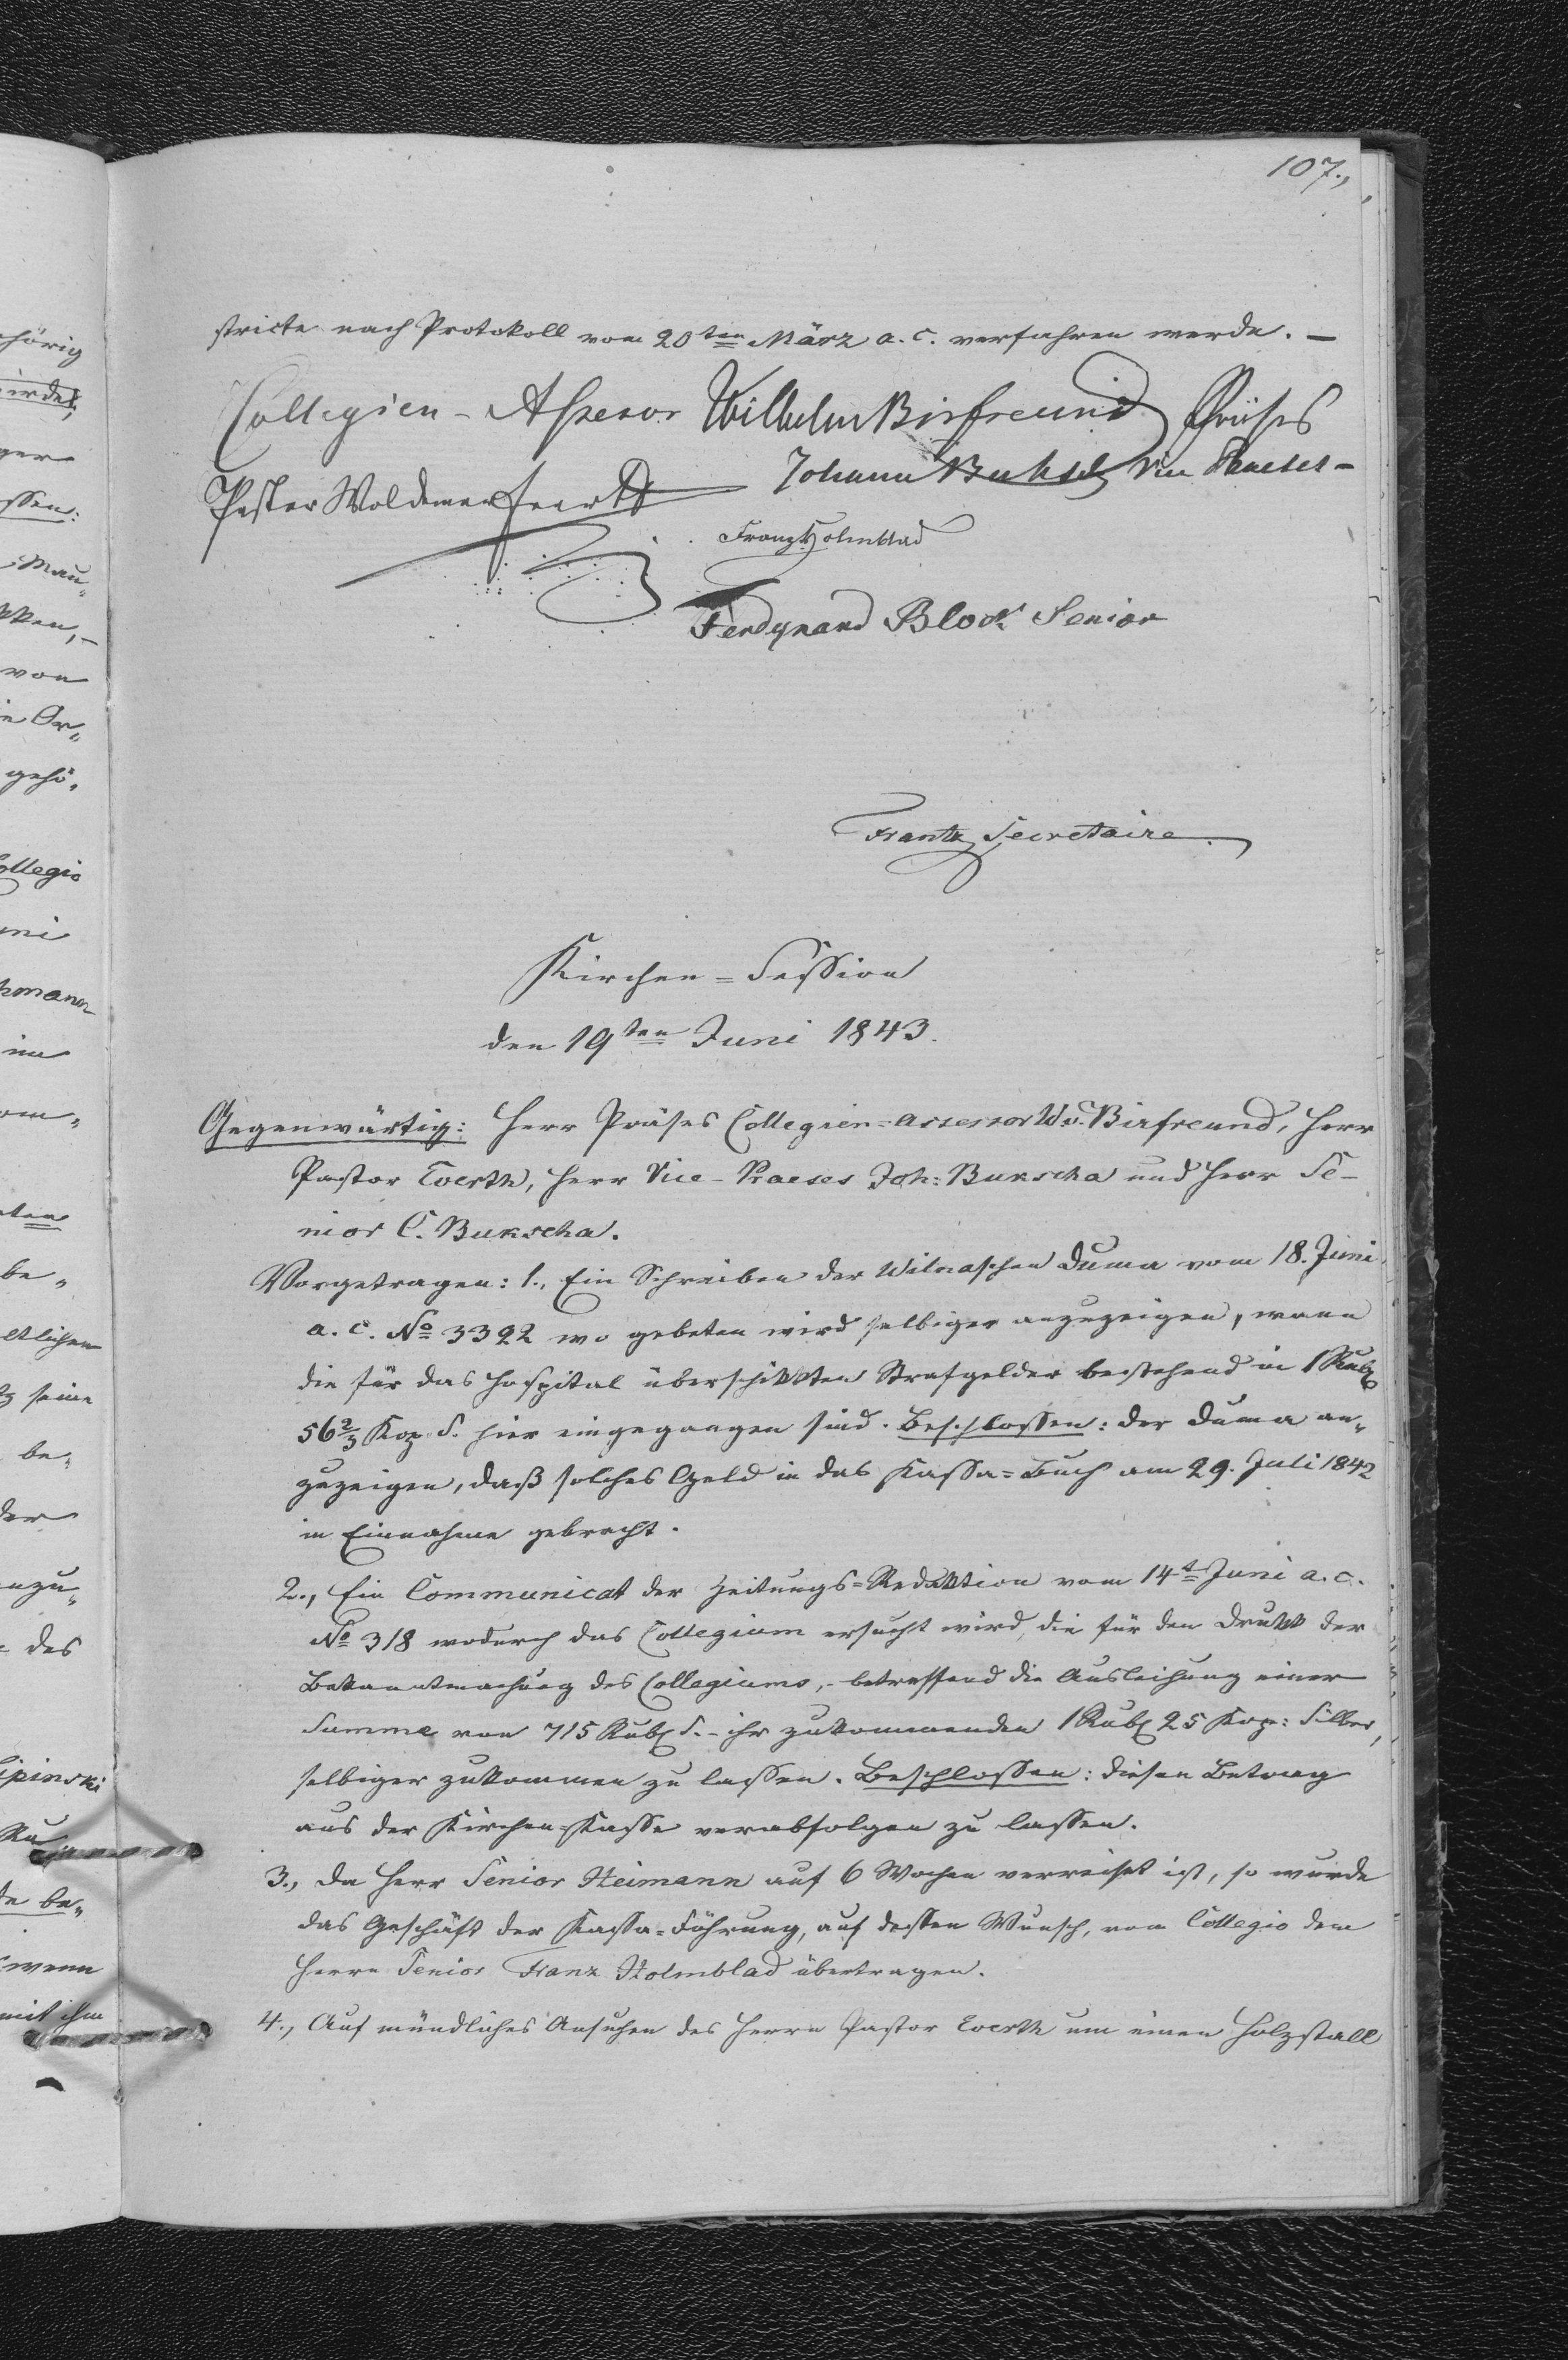 107.,
stricte nach Protokoll vom 20ten März a. c. verfahren werde. —
Collegien-Assessor Wilhelm Birfreund Präses
Johann Buksch Vice Praeses -
Pastor Woldemar Everth
Franz Holmblad
Ferdynand Block Senior
Frantz Secretaire
Kirchen=Session
den 19ten Juni 1843.
Gegenwärtig: Herr Präses Collegien=Assessor W. v. Birfreund, Herr
Pastor Everth, Herr Vice-Praeses Joh: Bukscha und Herr Se-
nior C. Bukscha.
Vorgetragen: 1., Ein Schreiben der Wilnaschen Duma vom 18. Juni
a. c. No 3392 wo gebeten wird selbiger anzuzeigen, wann
die für das Hospital überschikkten Strafgelder bestehend in 1 Rub
56 2/3 Kop S. hier eingegangen sind. Beschlossen: der Duma an„
zuzeigen, daß solches Geld in das Kassa=Buch am 29. Juli 1842
in Einnahme gebracht.
2., Ein Communicat der Zeitungs=Redaktion vom 14t Juni a. c.
No 318 wodurch das Collegium ersucht wird, die für den Drukk der
Bekanntmachung des Collegiums, - betreffend die Ausleihung einer
Summe von 715 Rub S. - ihr zukommenden 1 Rub 25 Kop: Silber,
selbiger zukommen zu lassen. Beschlossen: diesen Betrag
aus der Kirchen=Kasse verabfolgen zu lassen.
3., Da Herr Senior Heimann auf 6 Wochen verreiset ist, so wurde
das Geschäft der Kassa=Führung, auf dessen Wunsch, vom Collegio dem
Herrn Senior Franz Holmblad übertragen.
4., Auf mündliches Ansuchen des Herrn Pastor Everth um einen Holzstall